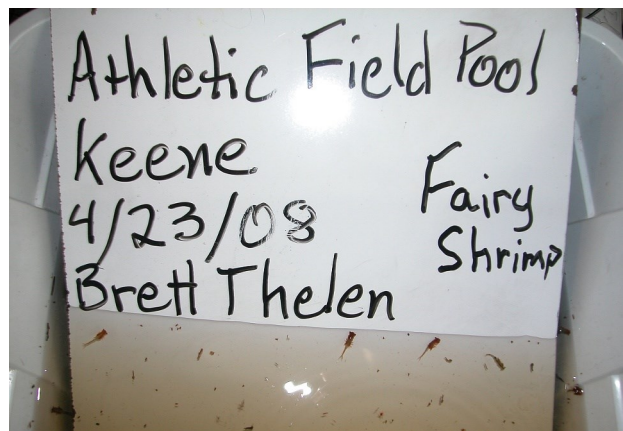 Athletic Field Pool
Keene
4/23/08
Brett Thelen
Fairy
Shrimp